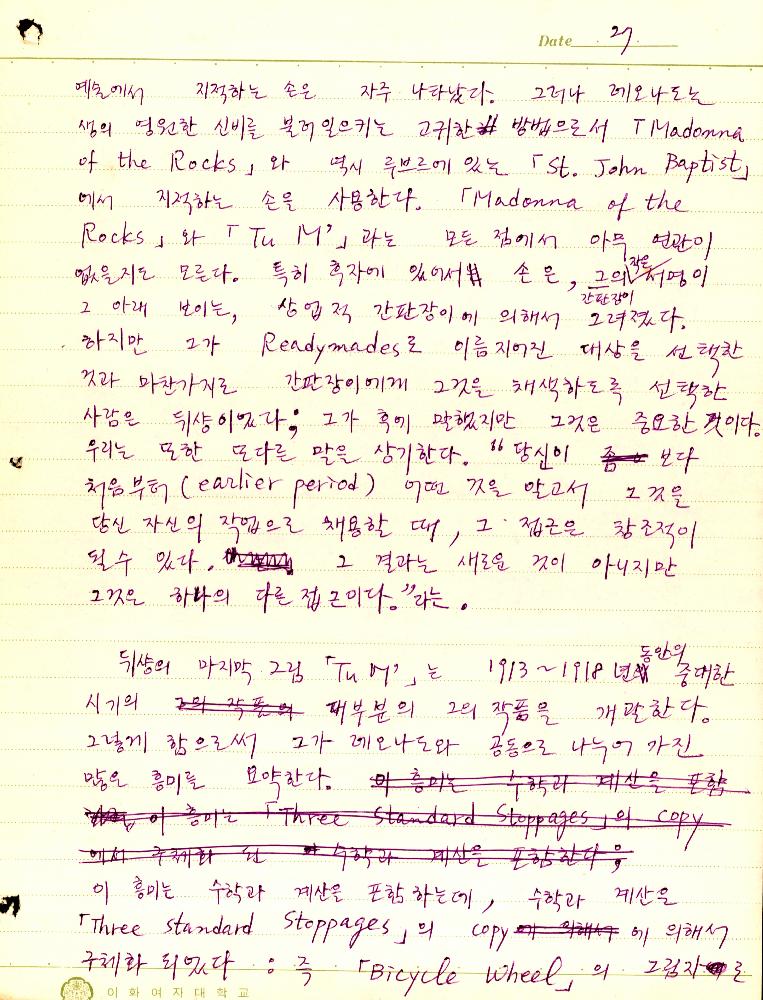 Date 27
예술에서 지적하는 손은 자주 나타났다. 그러나 레오나도는
생의 영원한 신비를 불러일으키는 고귀한 방법으로서 「Madonna
of the Rocks」와 역시 루브르에 있는 「St. John Baptist」
에서 지적하는 손을 사용한다. 「Madonna of the
Rocks」와 「Tu M'」과는 모든 점에서 아무 연관이
없을지도 모른다. 특히 후자에 있어서 손은, 그의 작은 서명이
간판장이
그 아래 보이는, 상업적 간판장이에 의해서 그려졌다.
하지만 그가 Readymades로 이름지어진 대상을 선택한
것과 마찬가지로 간판장이에게 그것을 채색하도록 선택한
사람은 뒤샹이었다; 그가 후에 말했지만 그것은 중요한 것이다.
우리는 또한 또다른 말을 상기한다. "당신이 보다
처음부터 (earlier period) 어떤 것을 알고서 그것을
당신 자신의 작업으로 채용할 때, 그 접근은 창조적이
될 수 있다. 그 결과는 새로운 것이 아니지만
그것은 하나의 다른 접근이다."라는.
뒤샹의 마지막 그림 「Tu M'」는 1913~1918년 동안의 중대한
시기의 그의 작품의 대부분의 그의 작품을 개괄한다.
그렇게 함으로써 그가 레오나도와 공동으로 나누어 가진
많은 흥미를 요약한다. 이 흥미는 수학과 계산을 포함
이 흥미는 「Three Standard Stoppages」의 copy
에서 구체화 된 수학과 계산을 포함한다;
이 흥미는 수학과 계산을 포함하는데, 수학과 계산은
「Three standard Stoppages」의 copy에 의해서 에 의해서
구체화 되었다 : 즉 「Bicycle Wheel」의 그림자로
이화여자대학교